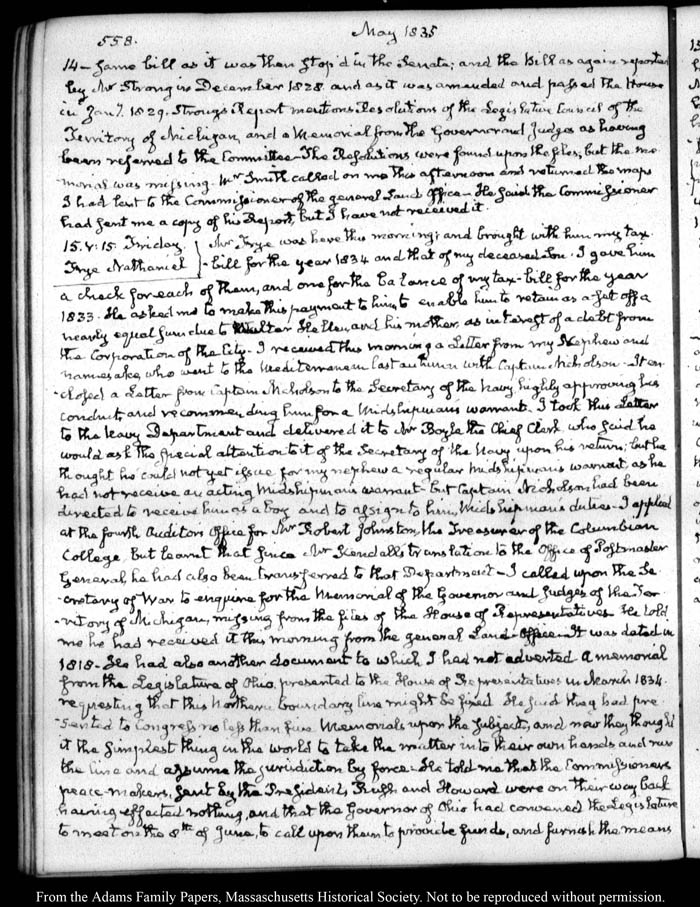 558.
May 1835
14 - same bill as it was then stop'd in the Senate; and the Bill as again reported
by Mr Strong in December 1828 and as it was amended and passed the House
in Jany. 1829. Strong's Report mentions Resolutions of the Legislative Council of the
Territory of Michigan, and a Memorial from the Governor and Judges as having
been referred to the Committee - The Resolutions were found upon the files, but the me
morial was missing. Mr Smith called on me this afternoon and returned the maps
I had lent to the Commissioner of the general Land Office - He said the Commissioner
had sent me a copy of his Report, but I have not received it.
15. V: 15. Friday.
Frye Nathaniel
Mr Frye was here this morning; and brought with him my tax
-bill for the year 1834 and that of my deceased Son. I gave him
a check for each of them, and one for the balance of my tax-bill for the year
1833. He asked me to make this payment to him, to enable him to retain as a set off a
nearly equal sum due to Walter Hellen, and his mother, as interest of a debt from
the Corporation of the City. I received this morning a Letter from my Nephew and
namesake, who went to the Mediterranean last autumn with Captain Nicholson - It en
-closed a Letter from Captain Nicholson to the Secretary of the Navy, highly approving his
conduct, and recommending him for a Midshipman's warrant. I took this Letter
to the Navy Department and delivered it to Mr Boyle the Chief Clerk, who said he
would ask the special attention to it of the Secretary of the Navy, upon his return; but he
thought he could not yet issue for my nephew a regular Midshipman's warrant, as he
had not receive an acting Midshipman's warrant - but Captain Nicholson had been
directed to receive him as a boy and to assign to him, Midshipman's duties - I applied
at the fourth Auditor's Office for Mr Robert Johnston, the Treasurer of the Columbian
College, but learnt that since Mr Kendall's translation to the Office of Postmaster
General, he had also been transferred to that Department - I called upon the Se
-cretary of War to enquire for the Memorial of the Governor and Judges of the Ter
-ritory of Michigan, missing from the files of the House of Representatives. He told
me he had received it this morning from the general Land-Office - It was dated in
1818 - He had also another document to which I had not adverted. A memorial
from the Legislature of Ohio, presented to the House of Representatives in March 1834.
requesting that this Northern boundary line might be fixed. He said they had pre
-sented to Congress no less than five Memorials upon the subject, and now they thought
it the simplest thing in the world to take the matter into their own hands and run
the line and assume the jurisdiction by force - He told me that the Commissioners
peace-makers, sent by the President, Rush and Howard were on their way back
having effected nothing, and that the Governor of Ohio had convened the Legislature
to meet on the 8th of June, to call upon them to provide funds, and furnish the means
From the Adams Family Papers, Massachusetts Historical Society. Not to be reproduced without permission.